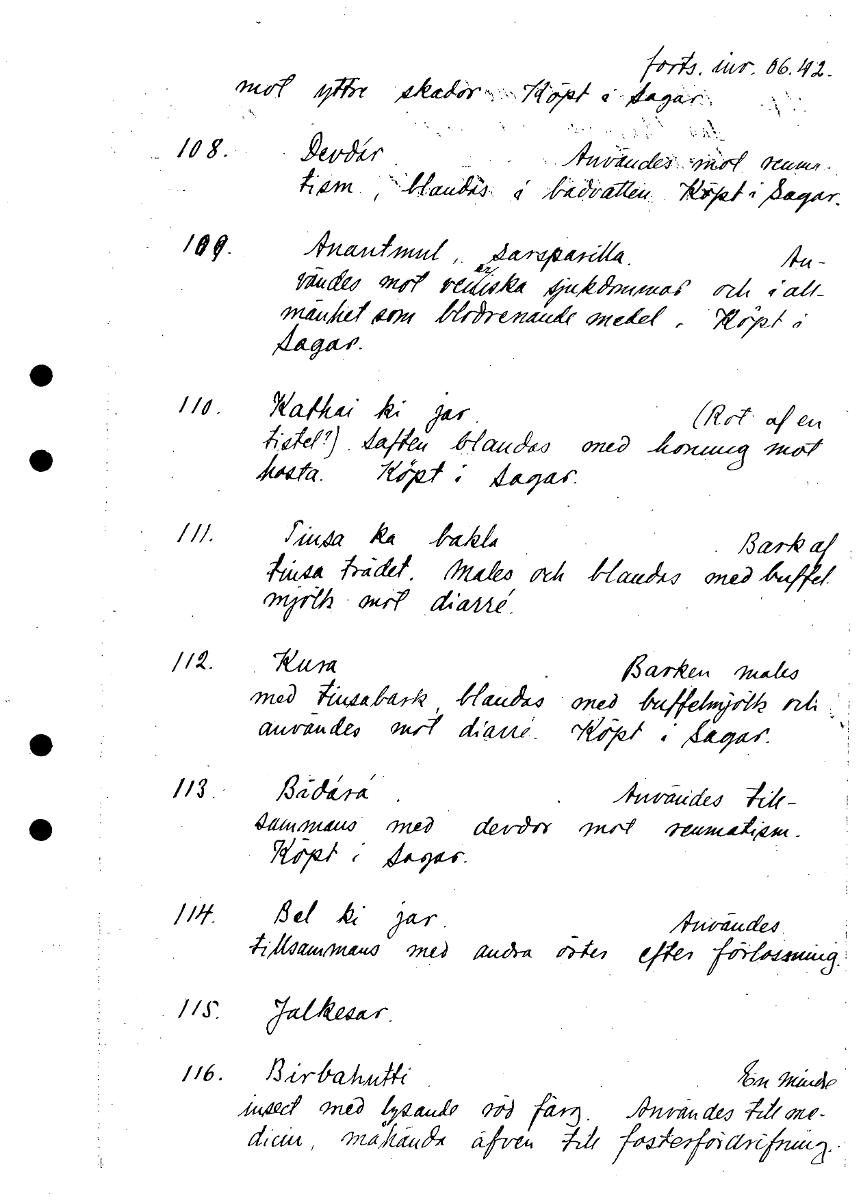 forts. inv. 06.42.
mot yttre skador Köpt i Sagar
108. Devdár Användes mot reuma-
tism, blandas i badvatten Köpt i Sagar.
109. Anantmul, sarsparilla. An-
vändes mot veneriska sjukdommar och i all-
mänhet som blodrenande medel. Köpt i
Sagar.
110. Kathai ki jar. (Rot af en
tistel?) Saften blandas med honung mot
hosta. Köpt i Sagar.
111. Tinsa ka bakla Bark af
tinsa trädet. Males och blandas med buffel
mjölk mot diarré.
112. Kura Barken males
med tinsabark, blandas med buffelmjölk och
användes mot diarré. Köpt i Sagar.
113. Bádárá Användes till-
sammans med devdor mot reumatism.
Köpt i Sagar.
114. Bel ki jar. Användes
tillsammans med andra örter efter förlossning.
115. Jalkesar.
116. Birbahutti En mindre
insect med lysande röd färg. Användes till me-
dicin, måhända äfven till fosterfördrifning.